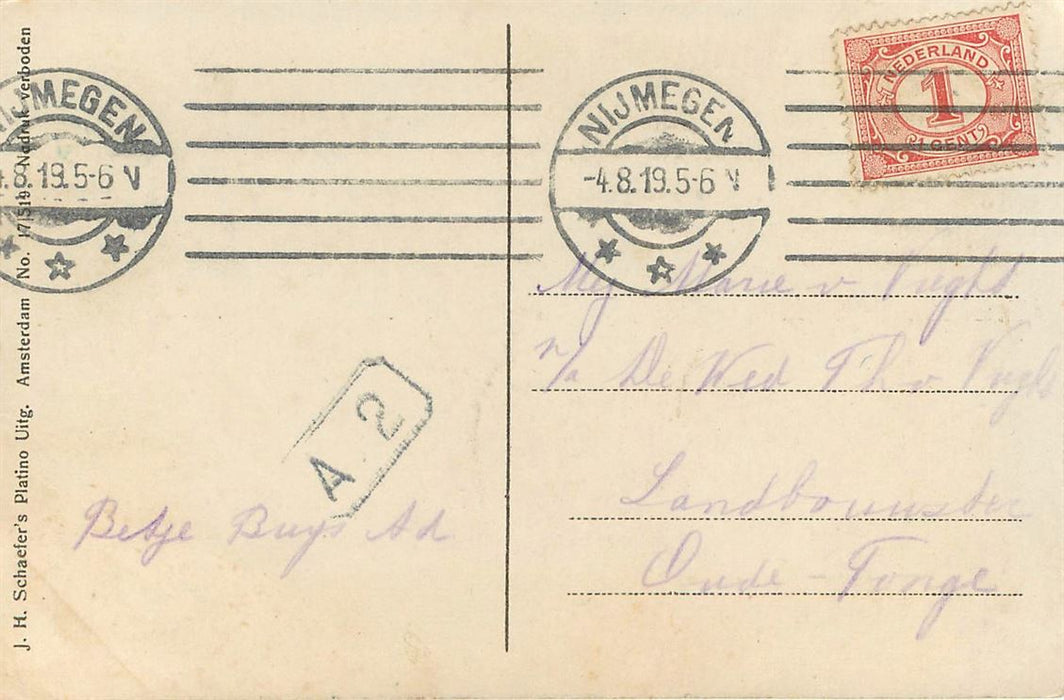 J. H. Schaefer's Platino Uitg. Amsterdam No. 17/519. Nadruk verboden
NIJMEGEN
4.8.19.5-6 V
NIJMEGEN
-4.8.19.5-6 V
NEDERLAND
1
1 CENT
A 2
Betje Buys Ad
Mej Marie v Vught
De Wed Th v Vught
Landbouwster
Oude-Tonge